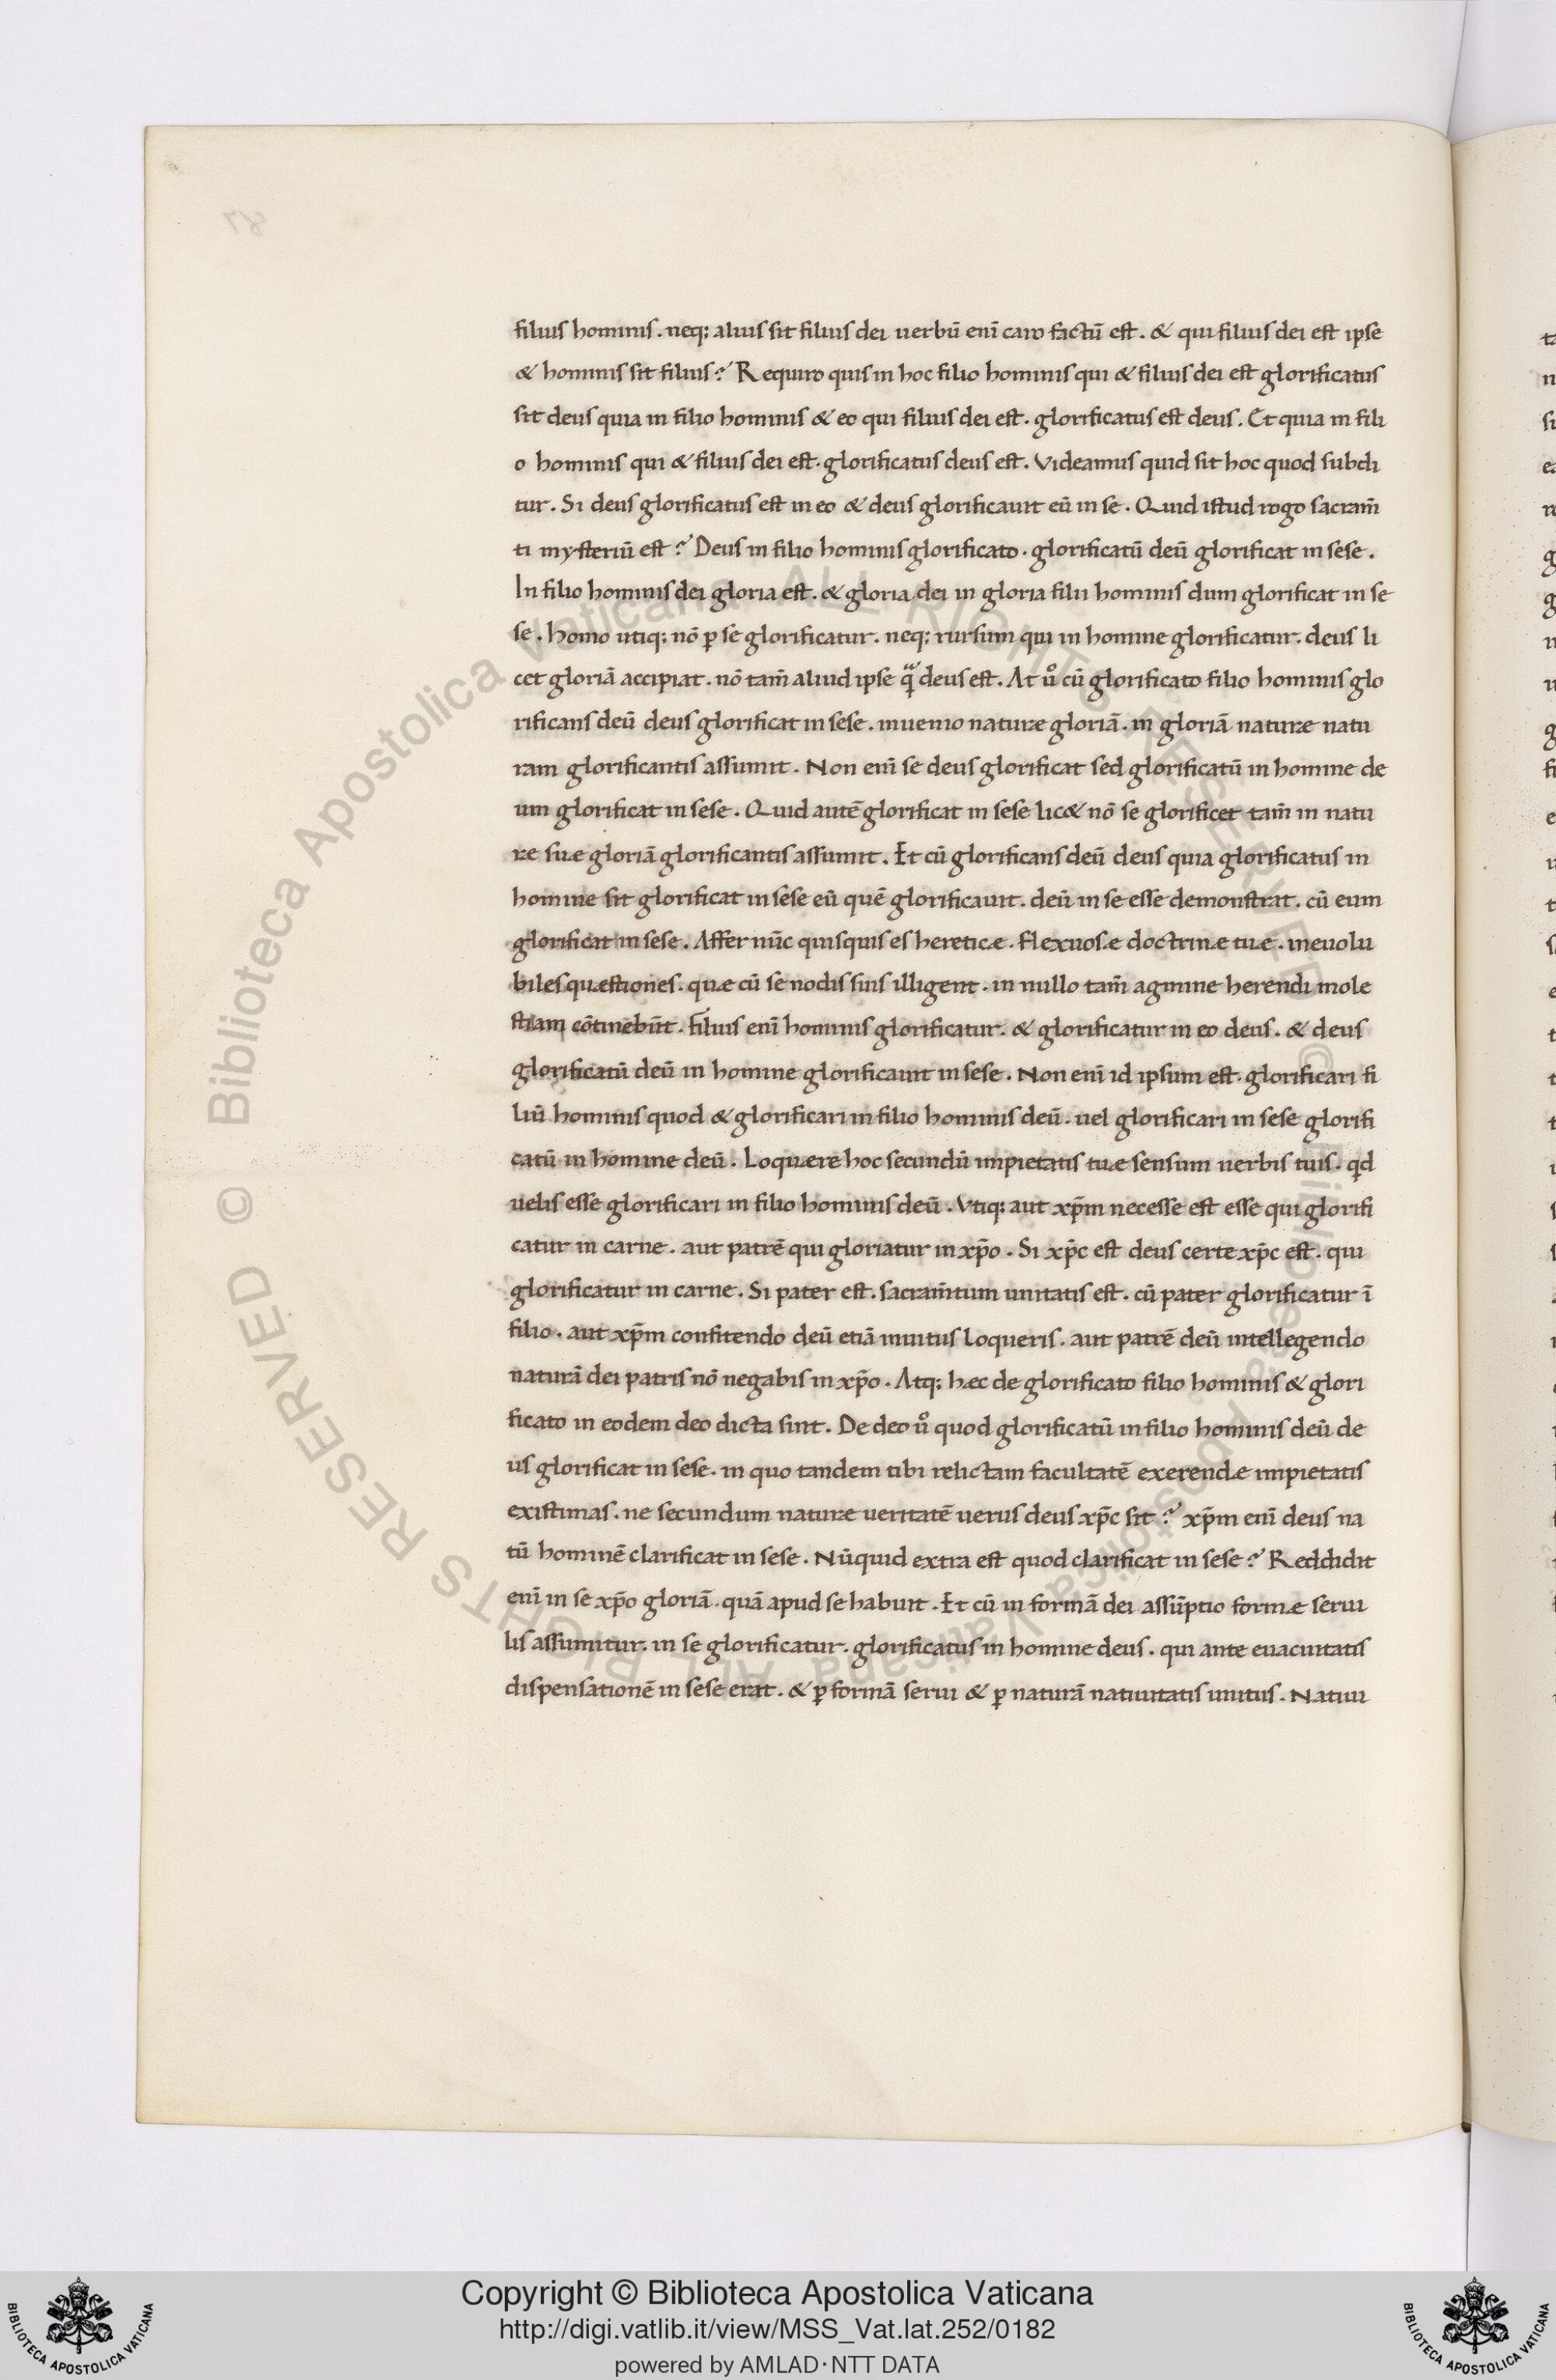 filius hominis. neq; alius sit filius dei uerbū enī caro factū est. & qui filius dei est ipse
& hominis sit filius? Requiro quis in hoc filio hominis qui & filius dei est glorificatus
sit deus quia in filio hominis & eo qui filius dei est. glorificatus est deus. Et quia in fili
o hominis qui & filius dei est. glorificatus deus est. Videamus quid sit hoc quod subdi
tur. Si deus glorificatus est in eo & deus glorificauit eū in se. Quid istud rogo sacram̄
ti mysteriū est? Deus in filio hominis glorificato. glorificatū deū glorificat in sese.
In filio hominis dei gloria est. & gloria dei in gloria filii hominis dum glorificat in se
se. homo utiq; nō ꝑ se glorificatur. neq; rursum qui in homine glorificatur. deus li
cet gloriā accipiat. nō tam̄ aliud ipse qͣ̄ deus est. At uͦ cū glorificato filio hominis glo
rificans deū deus glorificat in sese. inuenio naturæ gloriā. in gloriā naturæ natu
ram glorificantis assumit. Non enī se deus glorificat sed glorificatū in homine de
um glorificat in sese. Quid autē glorificat in sese lic& nō se glorificet tam̄ in natu
re suæ gloriā glorificantis assumit. Et cū glorificans deū deus quia glorificatus in
homine sit glorificat in sese eū quē glorificauit. deū in se esse demonstrat. cū eum
glorificat in sese. Affer nūc quisquis es hereticæ. flexuosæ doctrinæ tuæ. ineuolu
biles quæstiones. quæ cū se nodis suis illigent. in nullo tam̄ agmine herendi mole
stiam cōtinebūt. filius enī hominis glorificatur. & glorificatur in eo deus. & deus
glorificatū deū in homine glorificauit in sese. Non enī id ipsum est. glorificari fi
liū hominis quod & glorificari in filio hominis deū. uel glorificari in sese glorifi
catū in homine deū. Loquære hoc secundū impietatis tuæ sensum uerbis tuis. qd̄
uelis esse glorificari in filio hominis deū. Vtiq; aut xp̄m necesse est esse qui glorifi
catur in carne. aut patrē qui gloriatur in xp̄o. Si xp̄c est deus certe xp̄c est. qui
glorificatur in carne. Si pater est. sacram̄tum unitatis est. cū pater glorificatur ī
filio. aut xp̄m confitendo deū etiā inuitus loqueris. aut patrē deū intellegendo
naturā dei patris nō negabis in xp̄o. Atq; hæc de glorificato filio hominis & glori
ficato in eodem deo dicta sint. De deo uͦ quod glorificatū in filio hominis deū de
us glorificat in sese. in quo tandem tibi relictam facultatē exerendæ impietatis
existimas. ne secundum nature ueritatē uerus deus xp̄c sit? xp̄m enī deus na
tū hominē clarificat in sese. Nūquid extra est quod clarificat in sese? Reddidit
enī in se xp̄o gloriā. quā apud se habuit. Et cū in formā dei assūptio formæ serui
lis assumitur. in se glorificatur. glorificatus in homine deus. qui ante euacuitatis
dispensationē in sese erat. & ꝑ formā serui & ꝑ naturā natiuitatis unitus. Natiui
Copyright © Biblioteca Apostolica Vaticana
http://digi.vatlib.it/view/MSS_Vat.lat.252/0182
powered by AMLAD·NTT DATA